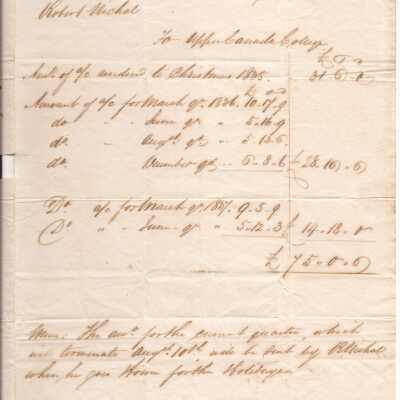 Robert Nichol
To Upper Canada College
£ s d
Amt. of a/c rendered to Christmas 1835. 31-6-0
£ s d
Amount of a/c for March qr. 1836. 10-17-9
do " " June qr " 5-16-9
do. " " Augst. qr. " 5-13-6.
do. " December qr. " 6-8-6 £ 28-16-6
Do. a/c for March qr. 1837. 9-5-9
Do " " June qr " 5-12-3 £ 14-18-0
£ 75-0-6
Mem: The amt. for the current quarter, which
will terminate Augst. 10th will be sent by R Nichol
when he goes Home for the Holidays.